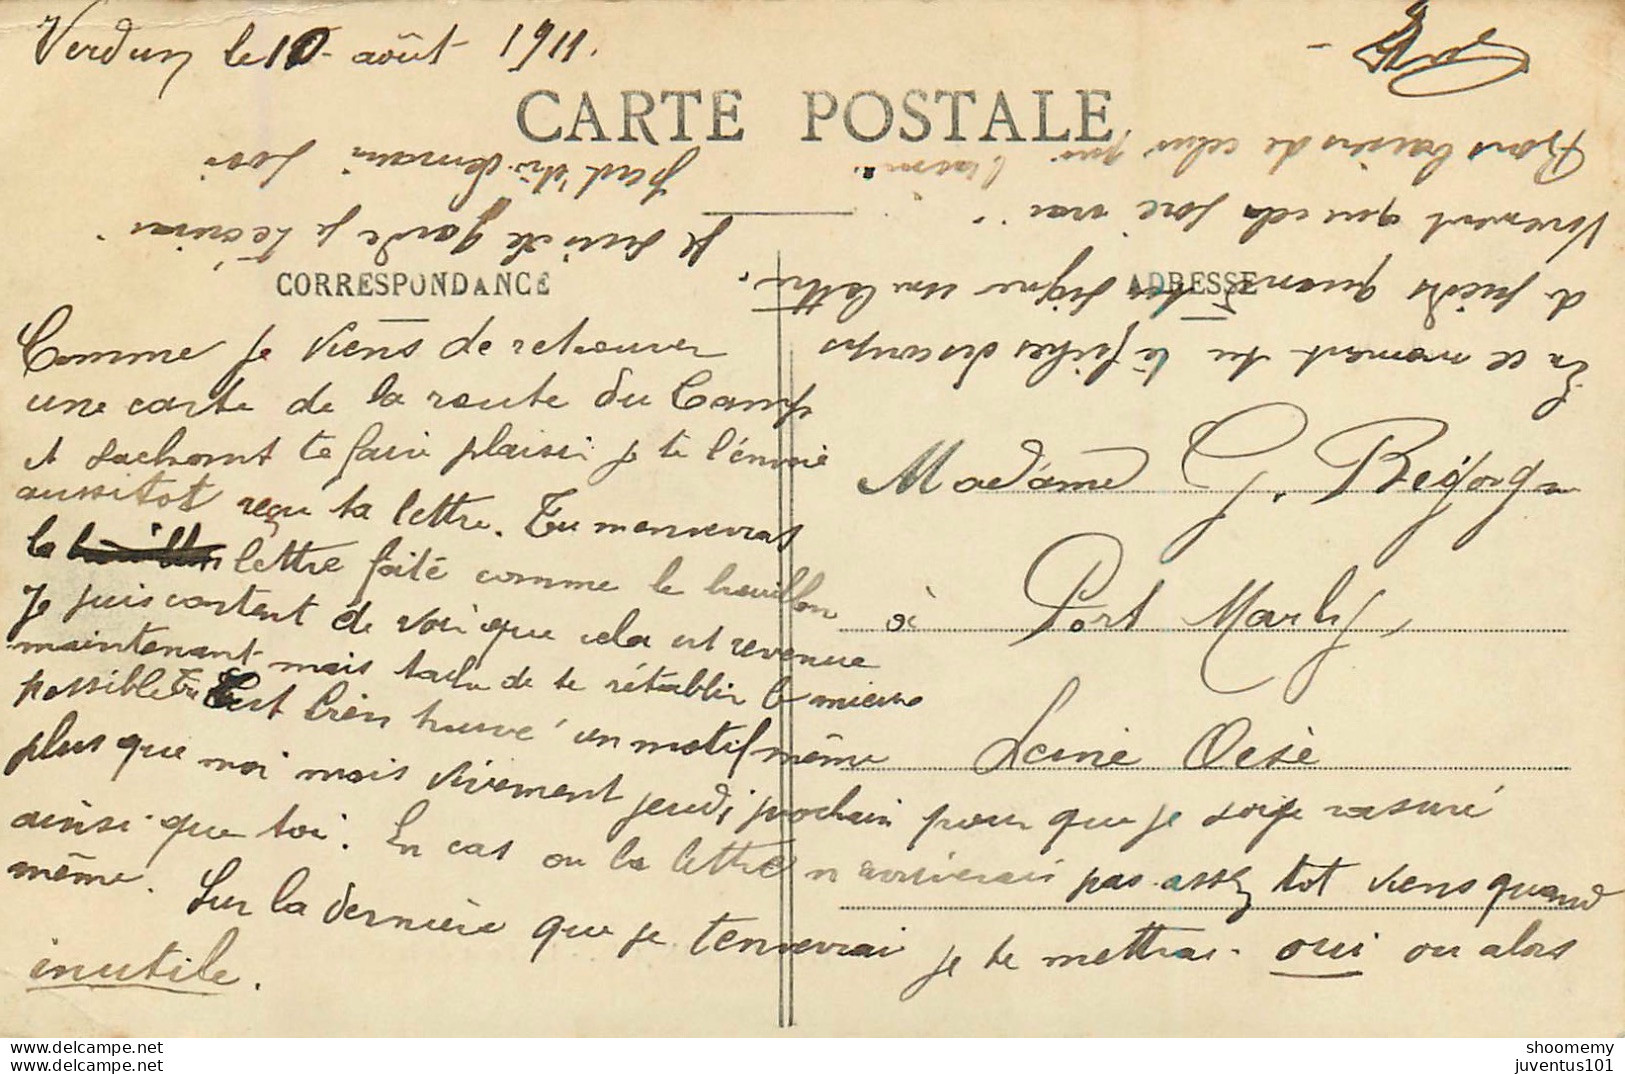 Verdun le 10 août 1911.
CARTE POSTALE
CORRESPONDANCE
ADRESSE
Comme je viens de retrouver
une carte de la route du Camp
et sachant te faire plaisir je te l'envoie
aussitot reçu ta lettre. Tu m'enverras
la lettre faite comme le brouillon
Je suis content de voir que cela est revenue
maintenant mais tache de te rétablir le mieux
possible Tu est bien trouvé un motif même
plus que moi mais vivement jeudi prochain pour que je soije rassuré
ainsi que toi. En cas ou la lettre n'arriverais pas assez tot viens quand
même. Sur la dernière que je t'enverrai je te mettrai oui ou alors
inutile.
Madame G. Bégorgne
à Port Marly
Seine Oise
En ce moment tu te fiches des coups
de pieds quand tu signe une lettre.
Vivement que cela soie vrai.
Bons baisers de celui qui t'aime.
Je suis de garde je t'écrirai
peut être demain soir
shoomemy
juventus101